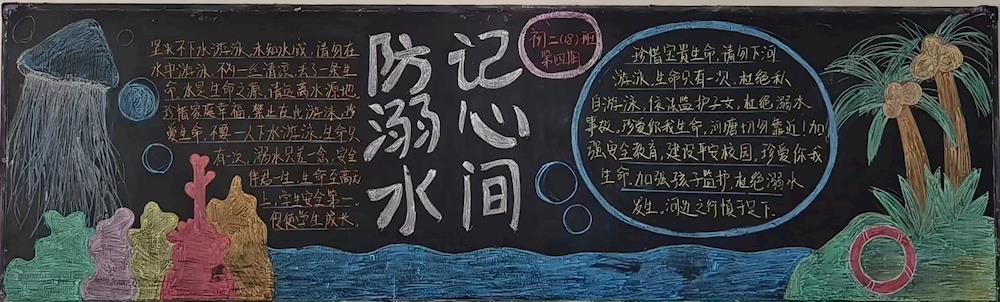 坚决不下水游泳,未知水域,请勿在
水中游泳,的一丝清凉,丢了一条生
命,水是生命之源,请远离水源地,
珍惜家庭幸福,禁止在此游泳,珍
爱生命,不要一人下水游泳,生命只
有一次,溺水只差一念,安全
伴君一生,生命至高无
上,学生安全第一,
促使学生成长.
防溺水
记心间
初二(18)班
第四期
珍惜宝贵生命,请勿下河
游泳,生命只有一次,杜绝私
自游泳,依法监护子女,杜绝溺水
事故,珍爱你我生命,河塘切勿靠近!加
强安全教育,建设平安校园,珍爱你我
生命,加强孩子监护,杜绝溺水
发生,河边之行慎于足下.